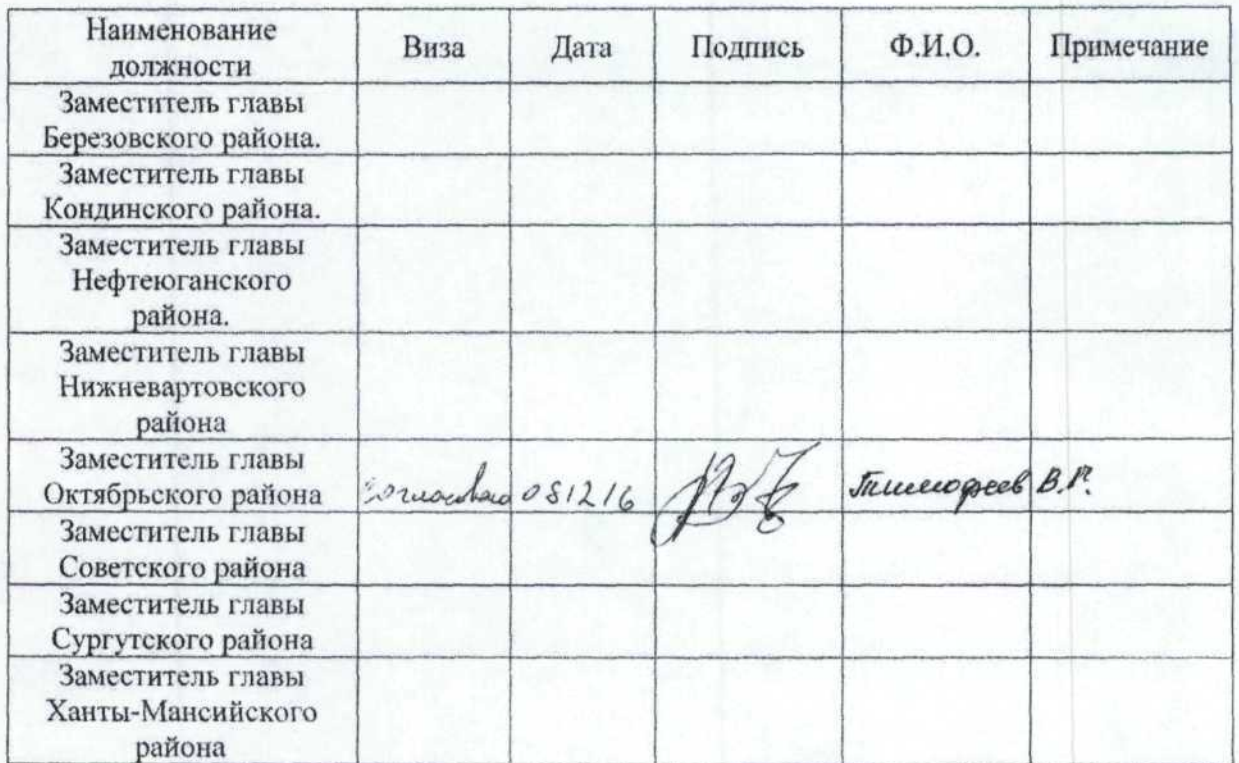 Наименование должности Виза Дата Подпись Ф.И.О. Примечание
Заместитель главы
Березовского района.
Заместитель главы
Кондинского района.
Заместитель главы
Нефтеюганского
района.
Заместитель главы
Нижневартовского
района
Заместитель главы
Октябрьского района согласовано 081216 Тимофеев В.Г.
Заместитель главы
Советского района
Заместитель главы
Сургутского района
Заместитель главы
Ханты-Мансийского
района